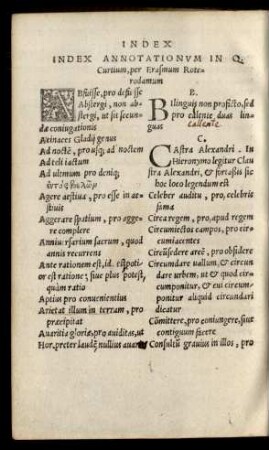 INDEX
INDEX ANNOTATIONVM IN Q.
Curtium, per Erasmum Rote-
rodamum
ABfuisse, pro defuisse
Abstergi, non ab-
stergi, ut sit secun-
da coniugationis
Acinaces Gladij genus
Ad noctẽ, pro usq; ad noctem
Ad teli iactum
Ad ultimum pro deniq;
Agere aestiua, pro esse in ae-
stiuis
Aggerare spatium, pro agge-
rere complere
Anniuersarium sacrum, quod
annis recurrent
Ante rationem est, id. est potior
est ratione; siue plus potest,
quàm ratio
Aptius pro conuenientius
Arietat illum in terram, pro
praecipitat
Auaritia gloriae, pro auiditas, ut
Hor. praeter laudẽ nullius auari
B.
BIlinguis non pro ficto, sed
pro callente duas lin-
guas
callente
C.
CAstra Alexandri. In
Hieronymo legitur Clau
stra Alexandri, & fortassis sic
hoc loco legendum est
Celeber auditu, pro, celebris
fama
Circa regem, pro, apud regem
Circumiectos campos, pro cir-
cumiacentes
Circũsedere arcẽ, pro obsidere
Circumdare uallum, & circum
dare urbem, ut & quod circum
ponitur, & cui circum-
ponitur aliquid circundari
dicatur
Cõmittere, pro coniungere, siue
contiguum facere
Consultũ grauius in illos, pro